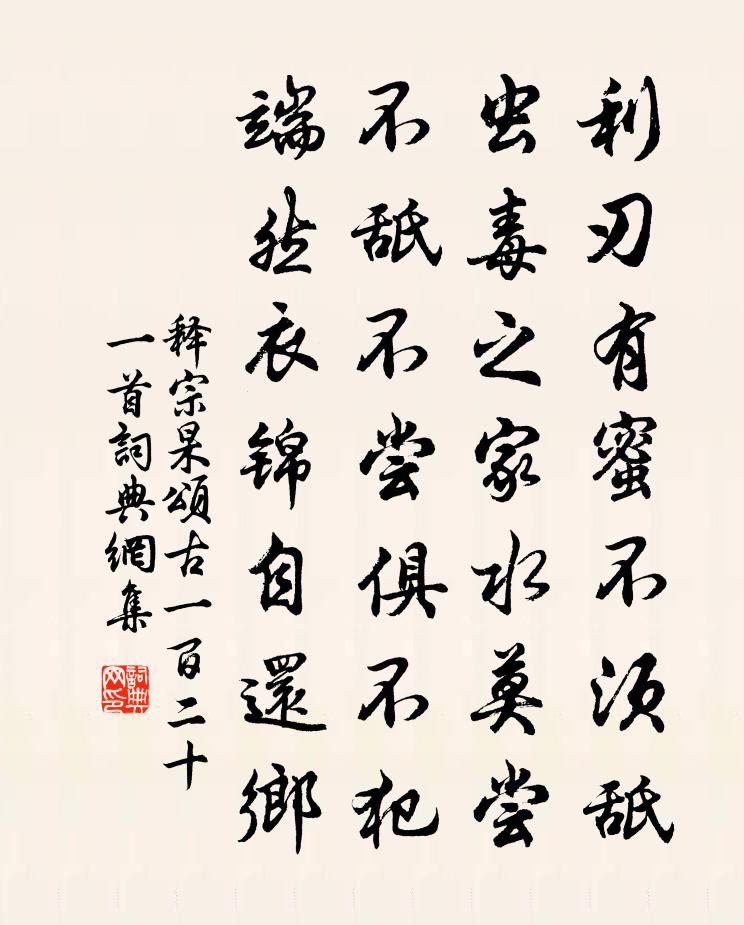 利刃有蜜不须舐
虫毒之家水莫尝
不舐不尝俱不犯
端然衣锦自還鄉
释宗杲頌古一百二十
一首詞典網集
詞典
网印